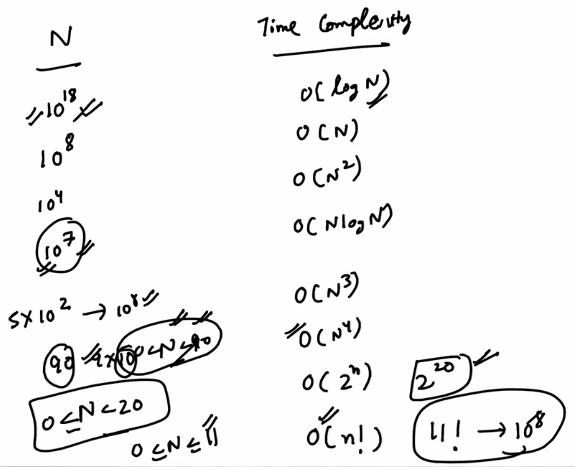 N Time Complexity
10^18 O(log N)
10^8 O(N)
10^4 O(N^2)
10^7 O(N log N)
5×10^2 → 10^8 O(N^3)
90 9×10 0<N<90 O(N^4)
0≤N<20 O(2^n) 2^20
0≤N≤11 O(n!) 11! → 10^8